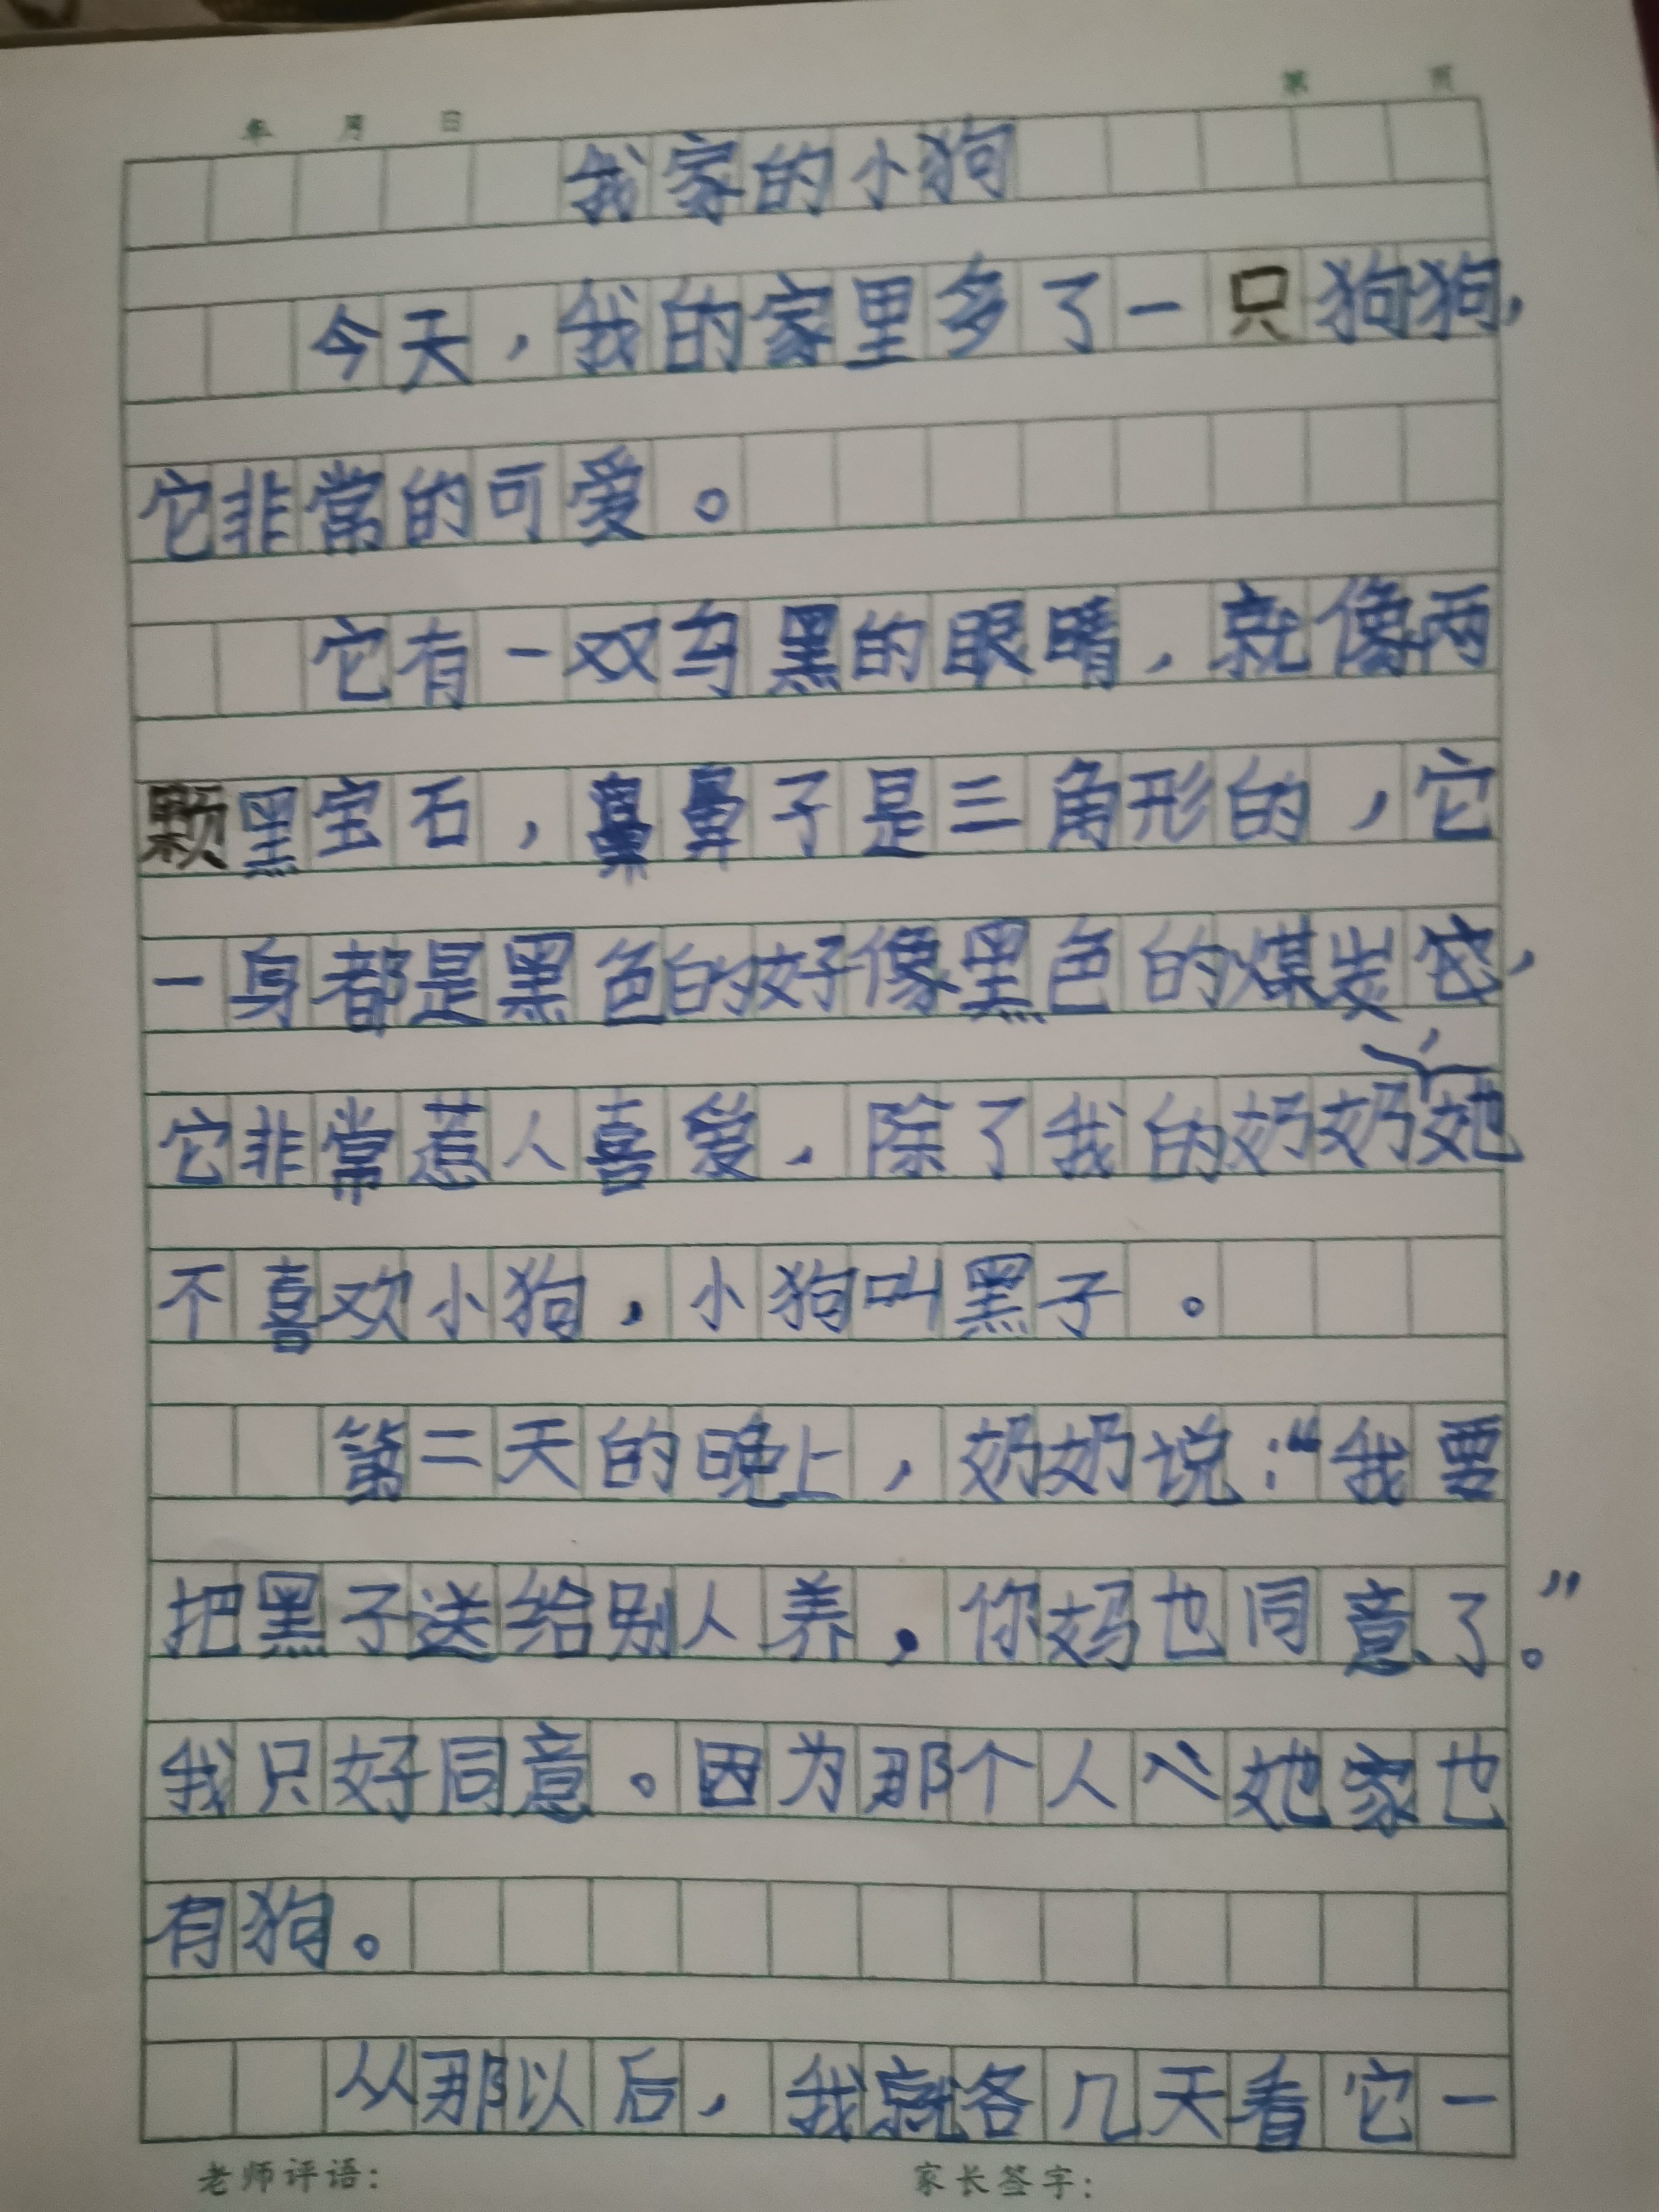 年 月 日 第 页
我家的小狗
今天，我的家里多了一只狗狗，
它非常的可爱。
它有一双乌黑的眼睛，就像两
颗黑宝石，鼻子是三角形的，它
一身都是黑色的好像黑色的煤炭，
它非常惹人喜爱，除了我的奶奶，她
不喜欢小狗，小狗叫黑子。
第二天的晚上，奶奶说：“我要
把黑子送给别人养，你妈也同意了。”
我只好同意。因为那个人她家也
有狗。
从那以后，我就各几天看它一
老师评语： 家长签字：